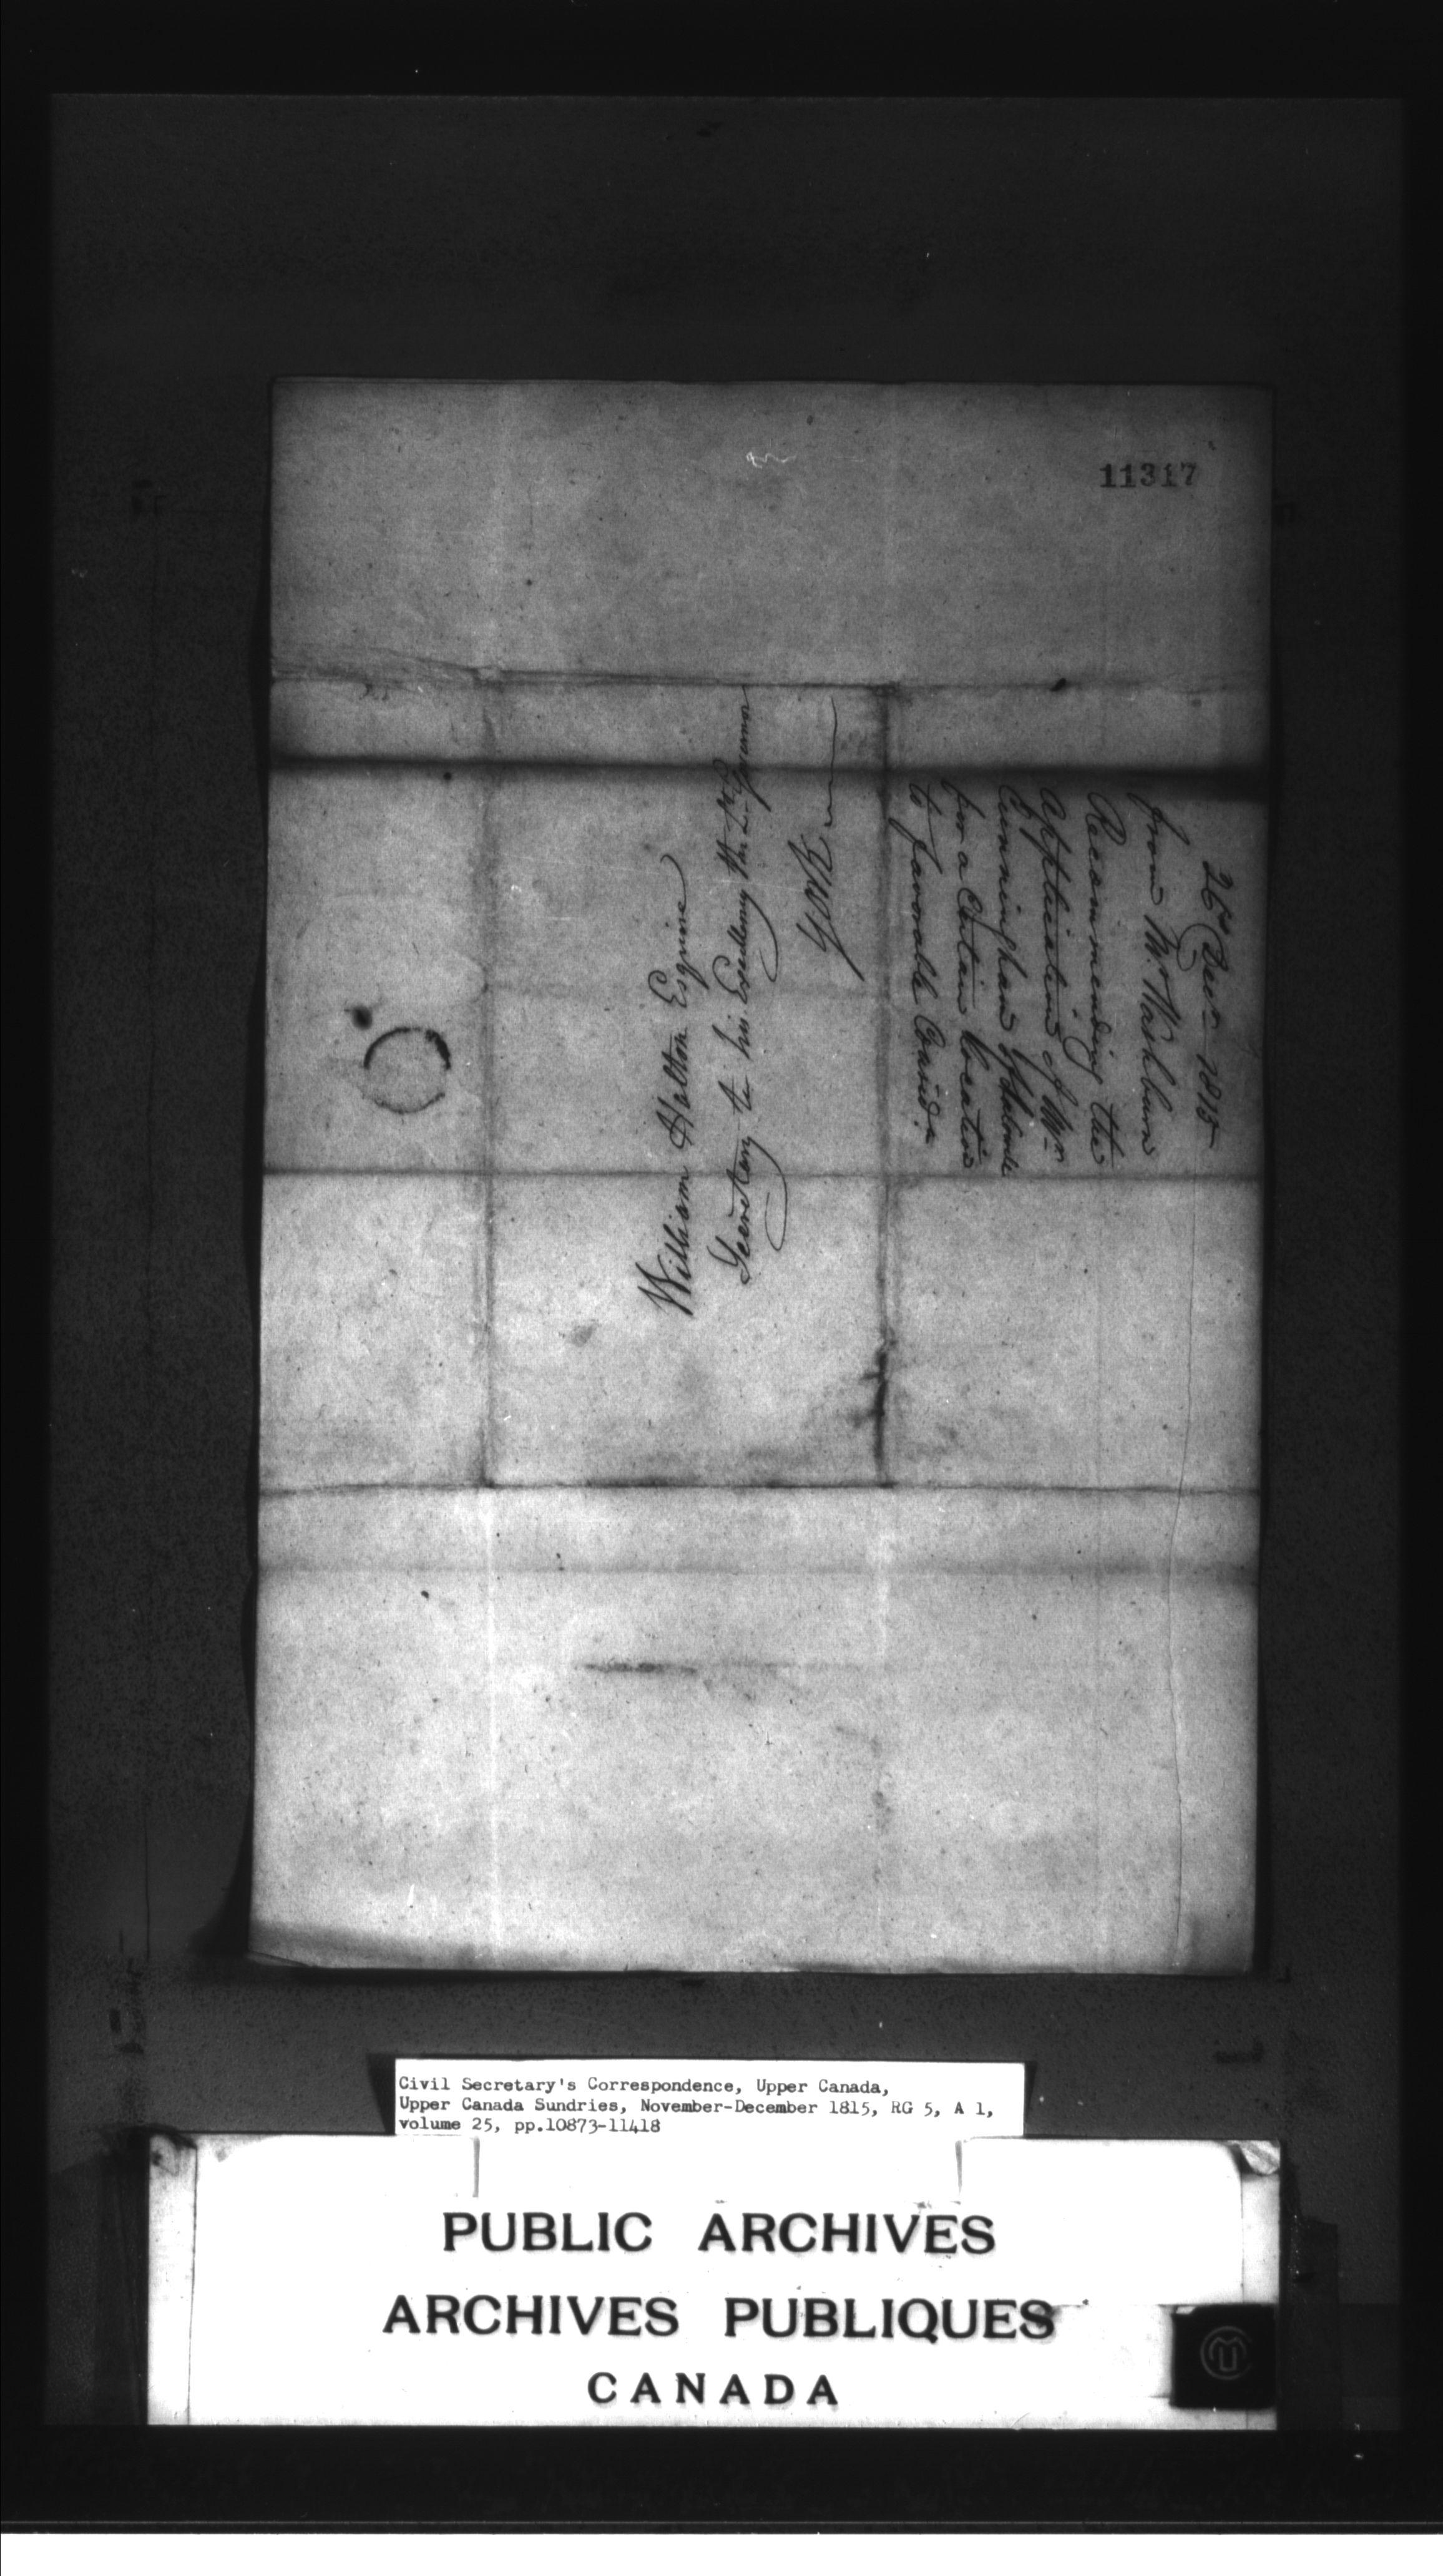 11317
26th Decr 1815
from Mr. Washburn
Recommending the
application of Wm
Cunningham
for a Certain Location
to favorable Considn
William Halton Esquire
Secretary to his Excellency the Lt. Governor
York
Civil Secretary's Correspondence, Upper Canada,
Upper Canada Sundries, November-December 1815, RG 5, A 1,
volume 25, pp.10873-11418
PUBLIC ARCHIVES
ARCHIVES PUBLIQUES
CANADA